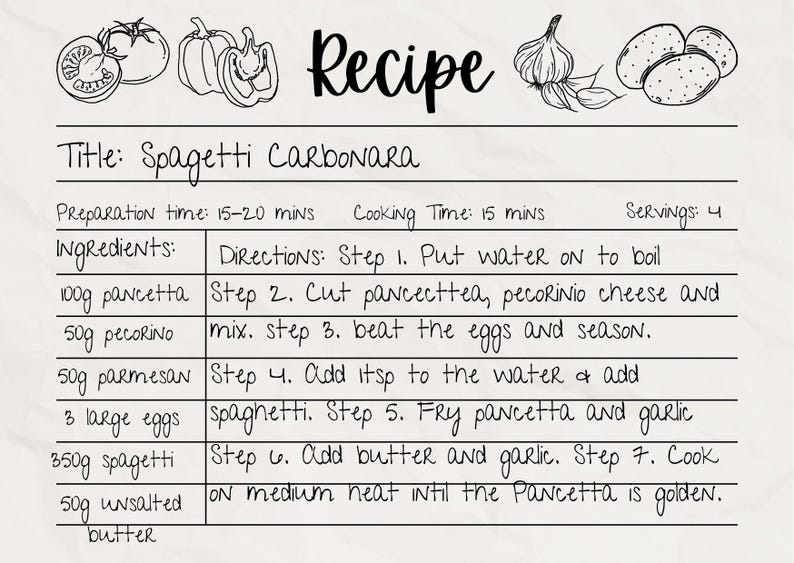 Recipe
Title: Spagetti Carbonara
Preparation time: 15-20 mins Cooking Time: 15 mins Servings: 4
Ingredients:
100g pancetta
50g pecorino
50g parmesan
3 large eggs
350g spagetti
50g unsalted
butter
Directions: Step 1. Put water on to boil
Step 2. Cut pancecttea, pecorinio cheese and
mix. step 3. beat the eggs and season.
Step 4. Add 1tsp to the water & add
spaghetti. Step 5. Fry pancetta and garlic
Step 6. Add butter and garlic. Step 7. Cook
on medium heat intil the Pancetta is golden.